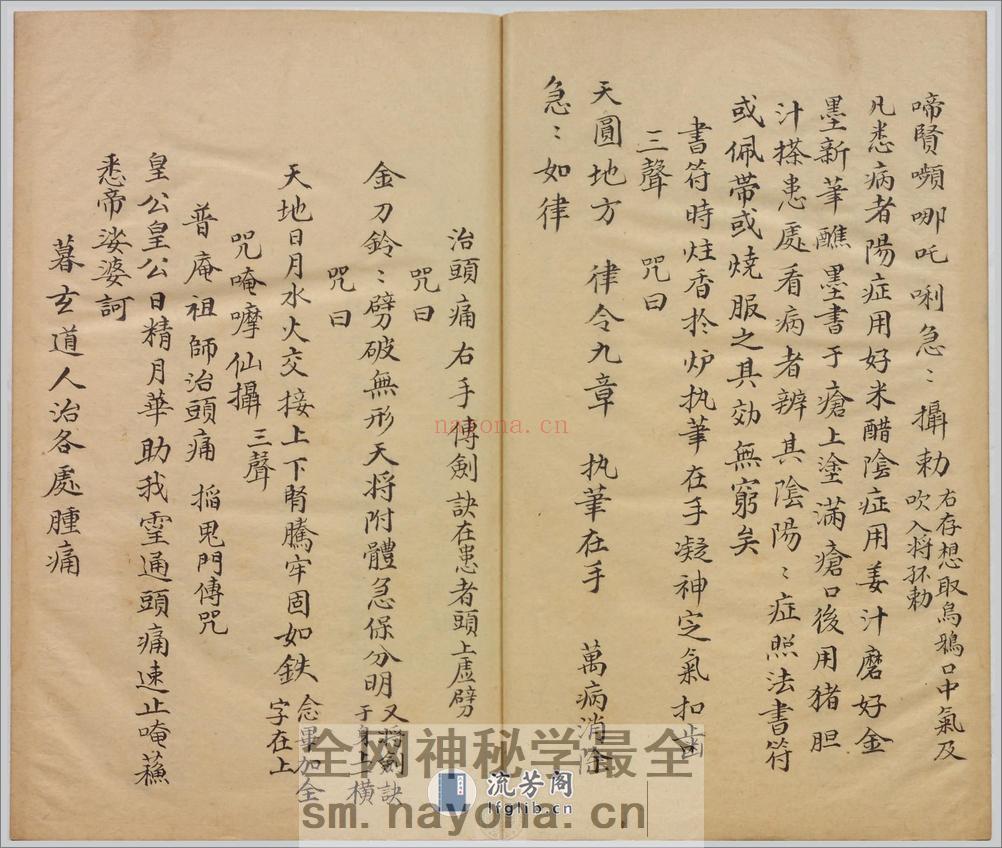 啼賢嚬哪吒唎急〻攝勅 右存想取烏鴉口中氣及
吹入將环勅
凡患病者陽症用好米醋陰症用姜汁磨好金
墨新筆醮墨書于瘡上塗滿瘡口後用猪胆
汁搽患處看病者辨其陰陽〻症照法書符
或佩帶或燒服之其効無窮矣
書符時炷香扵炉执筆在手凝神定氣扣齿
三聲 咒曰
天圓地方 律令九章 执筆在手 萬病消除
急〻如律
治頭痛右手傅劍訣在患者頭上虛劈
咒曰
金刀鈴〻劈破無形天将附體急保分明 又将劍訣
于上橫
咒曰
天地日月水火交接上下腎騰牢固如鉄 念畢加全
字在上
咒唵嚤仙攝 三聲
普庵祖師治頭痛 掐鬼門傳咒
皇公皇公日精月華助我霊通頭痛速止唵蘓
悉帝娑婆訶
暮玄道人治各處腫痛
nayona.cn
全网神秘学最全
流芳阁
lfglib.cn
sm.nayona.cn